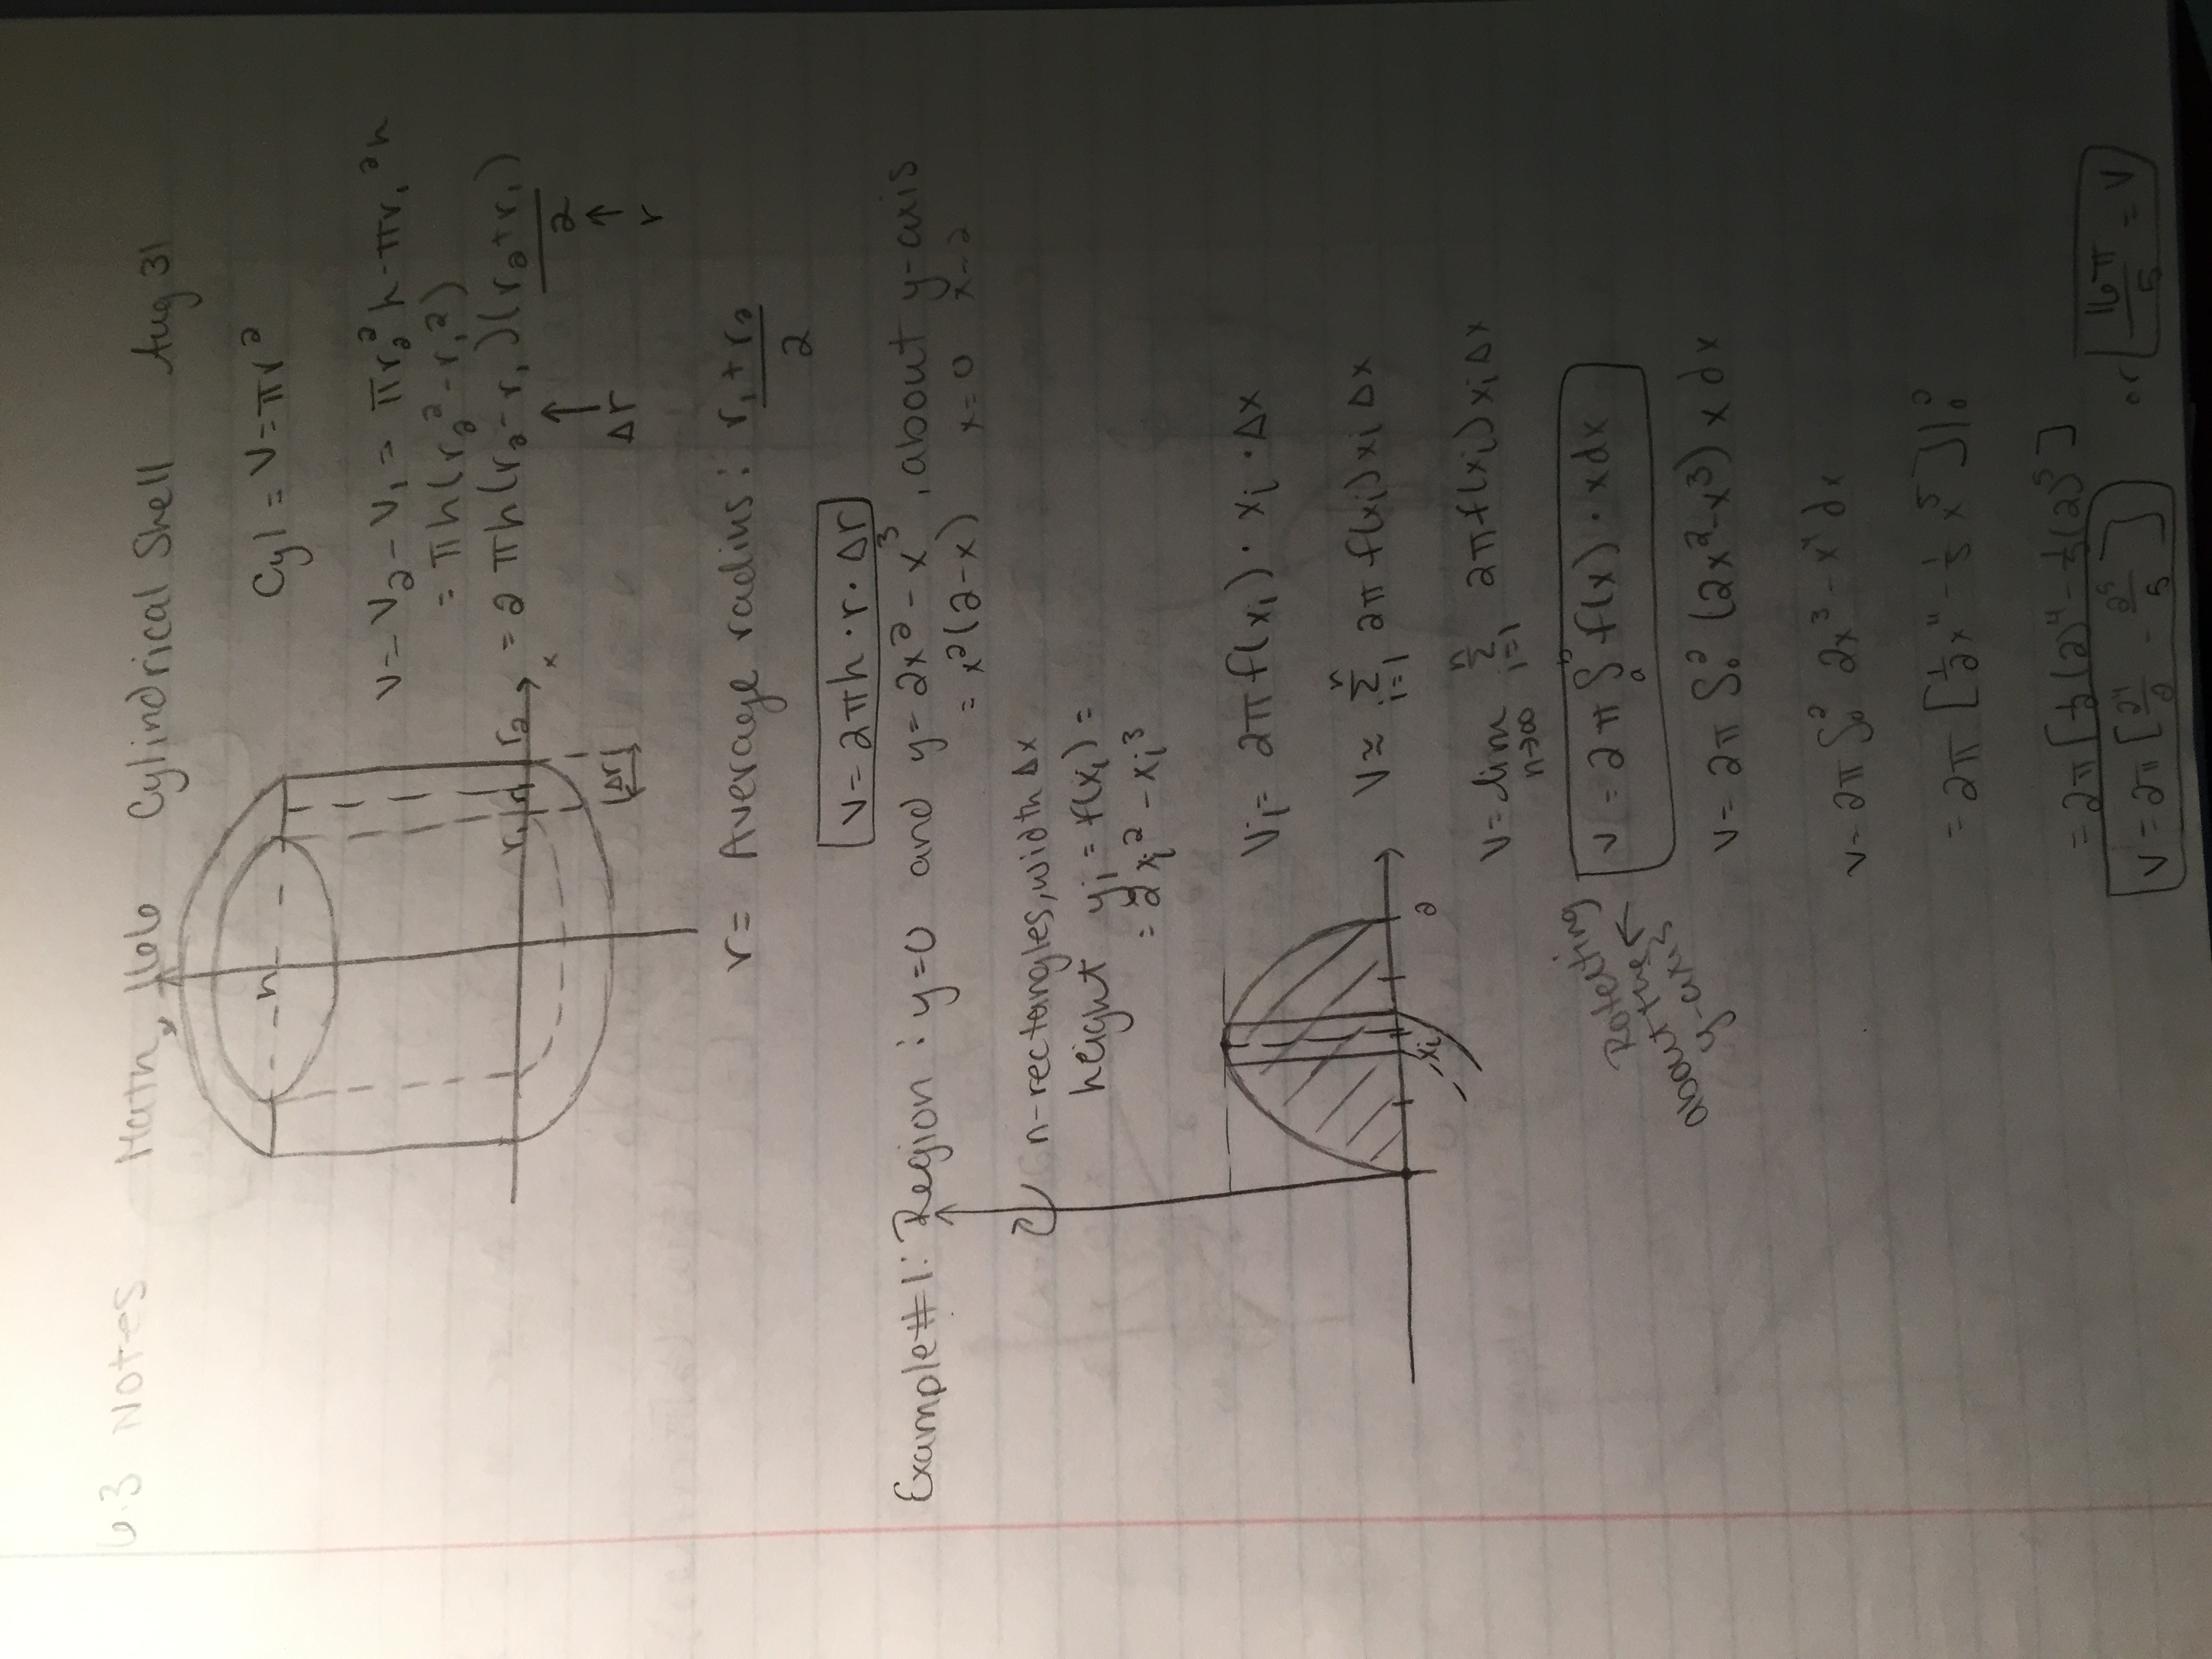 6.3 Notes Math 166 Cylindrical Shell Aug 31
Cyl = V = πr²
V = V₂ - V₁ = πr₂²h - πr₁²h
= πh(r₂² - r₁²)
= 2πh(r₂ - r₁)(r₂ + r₁)/2
↑ Δr ↑ r
h
r₁ r₂ x
|Δr|
r = Average radius: (r₁ + r₂)/2
V = 2πh·r·Δr
Example #1: Region: y=0 and y = 2x² - x³, about y-axis
= x²(2-x) x=0 x=2
n-rectangles, width Δx
height yᵢ = f(xᵢ) =
= 2xᵢ² - xᵢ³
xᵢ 2
Vᵢ = 2πf(xᵢ)·xᵢ·Δx
V ≈ ⁿΣᵢ₌₁ 2πf(xᵢ)xᵢΔx
V = lim n→∞ ⁿΣᵢ₌₁ 2πf(xᵢ)xᵢΔx
Rotating about the y-axis ← V = 2π ∫ₐᵇ f(x)·xdx
V = 2π ∫₀² (2x²-x³)xdx
V = 2π ∫₀² 2x³-x⁴dx
= 2π[½x⁴ - ⅕x⁵]|₀²
= 2π[½(2)⁴ - ⅕(2)⁵]
V = 2π[2⁴/2 - 2⁵/5] or 16π/5 = V